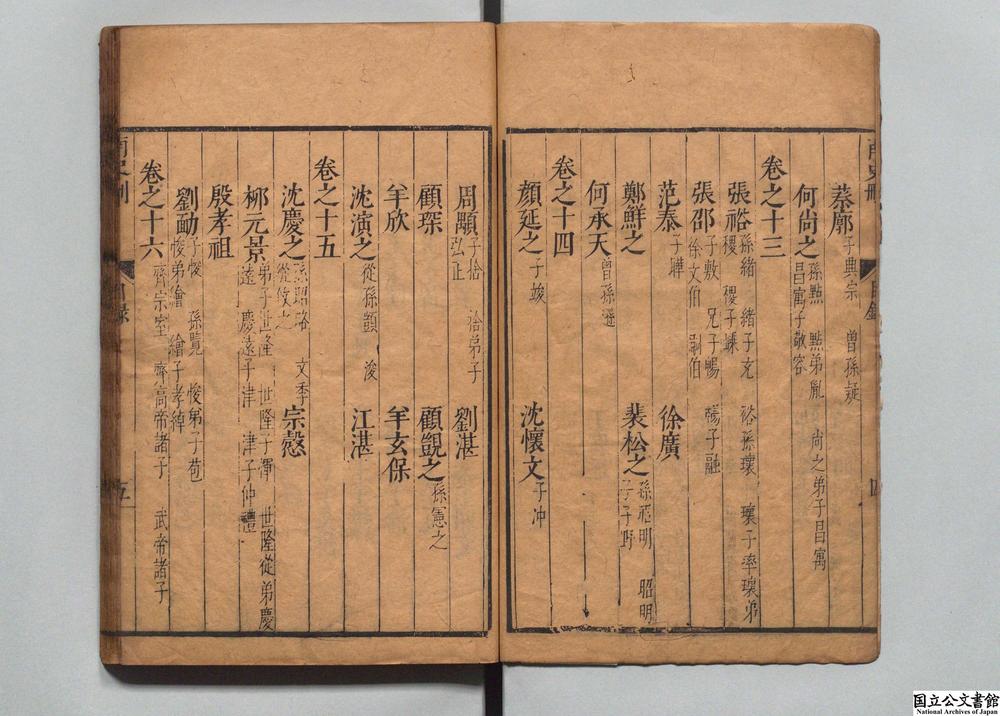 蔡廓 子興宗 曾孫凝
何尚之 孫點 點弟胤 尚之弟子昌㝢 昌㝢子敬容
卷之十三
張裕 孫緒 緒子充 裕孫瓌 瓌子率 瓌弟稷 稷子嵊
張邵 子敷 兄子暢 暢子融 徐文伯 嗣伯
范泰 子曄 徐廣
鄭鮮之 裴松之 孫昭明 昭明子子野
何承天 曾孫遜
卷之十四
顏延之 子竣 沈懷文 子沖
周顒 子捨 捨弟子弘正 劉湛
顧琛 顧覬之 孫憲之
羊欣 羊玄保
沈演之 從孫顗 浚 江湛
卷之十五
沈慶之 孫昭略 文季 從攸之 宗愨
柳元景 弟子世隆 世隆子惲 世隆從弟慶遠 慶遠子津 津子仲禮
殷孝祖
劉勔 子悛 孫覽 悛弟子苞 悛弟繪 繪子孝綽
卷之十六 齊宗室 齊高帝諸子 武帝諸子
五
国立公文書館
National Archives of Japan